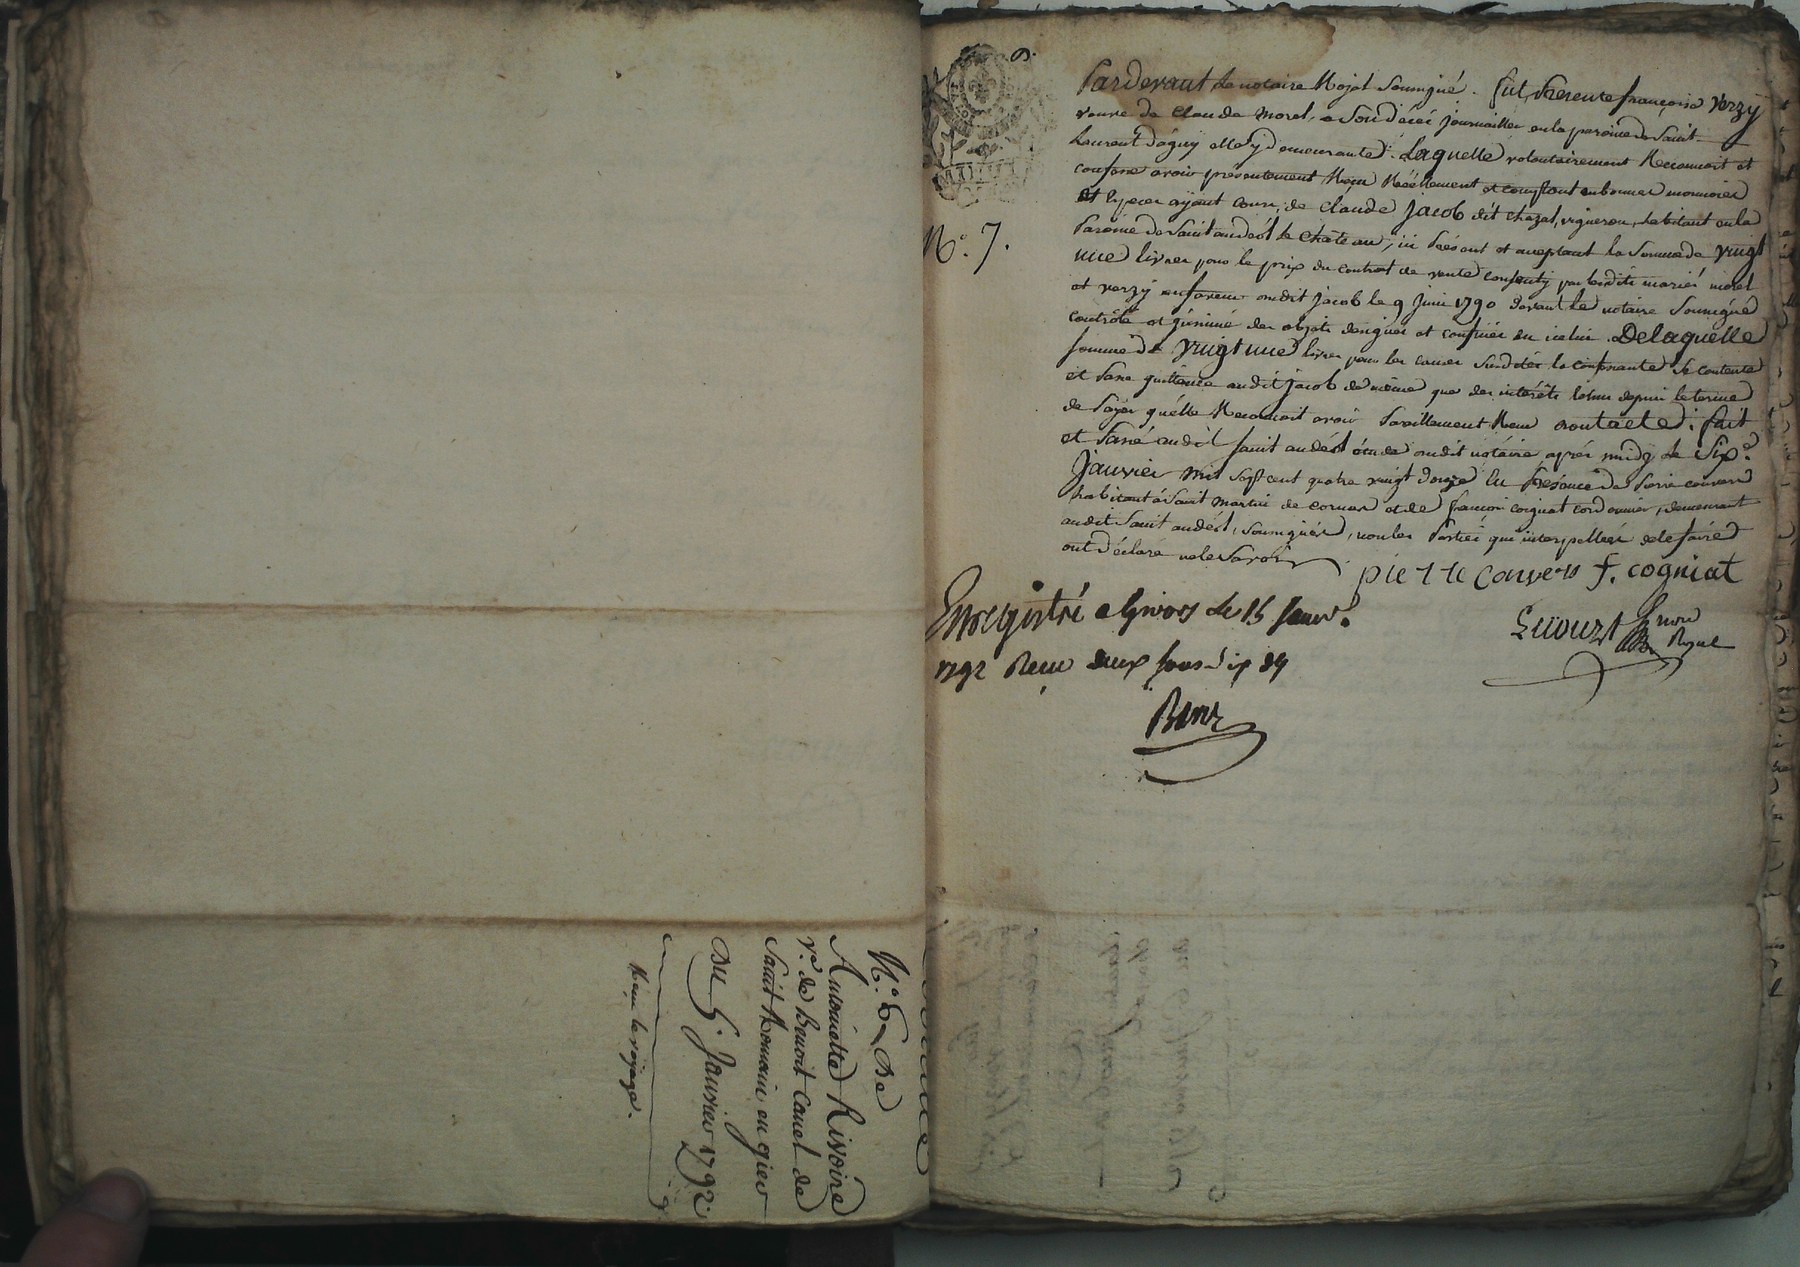 N.° 6 De
Antoinette Rivoire
v.e de Benoit Canel de
Saint Romain en gier
Du 5. Janvier 1792.
Reçu le voyage.
N.° 7.
Pardevant Le notaire Royal Soussigné. fut Presente françoise Verzÿ
veuve de Claude Morel, a Son décéz journaillier en la paroisse de Saint
Laurent d'agny elle y demeurante. Laquelle volontairement Reconnoit et
confesse avoir presentement Reçu Réellement et comptant en bonnes monnoies
Et Especes ayant cours, de Claude Jacob dit Chazal, vigneron, habitant en la
Paroisse de Saint andéol le Château, ici Présent et acceptant la Somme de Vingt
une livres pour le prix du contrat de vente consenty par lesdits mariés morel
et verzÿ en faveur dudit Jacob le 9 Juin 1790 devant le notaire Soussigné
controlé et des objets désignés et confinés en icelui. De laquelle
somme de Vingt une livres pour les causes Susdites la confessante Se contente
et Passe quittance audit Jacob de même que des intérêts depuis le terme
de Payer quélle Reconnoit avoir Pareillement Reçu dont acte. fait
et Passé audit Saint andéol étude dudit notaire après midy le Six.e
Janvier Mil Sept cent quatre vingt douze En Présence de Pierre convers
habitant à Saint Martin de cornas et de françois cogniat cordonnier, demeurant
audit Saint andéol, soussignés, non les Parties qui interpellées de le faire
ont déclaré ne le Savoir
pierre Convers f. cogniat
Enregistré a Givors Le 15 Janv.
1792 Reçu deux sous Six